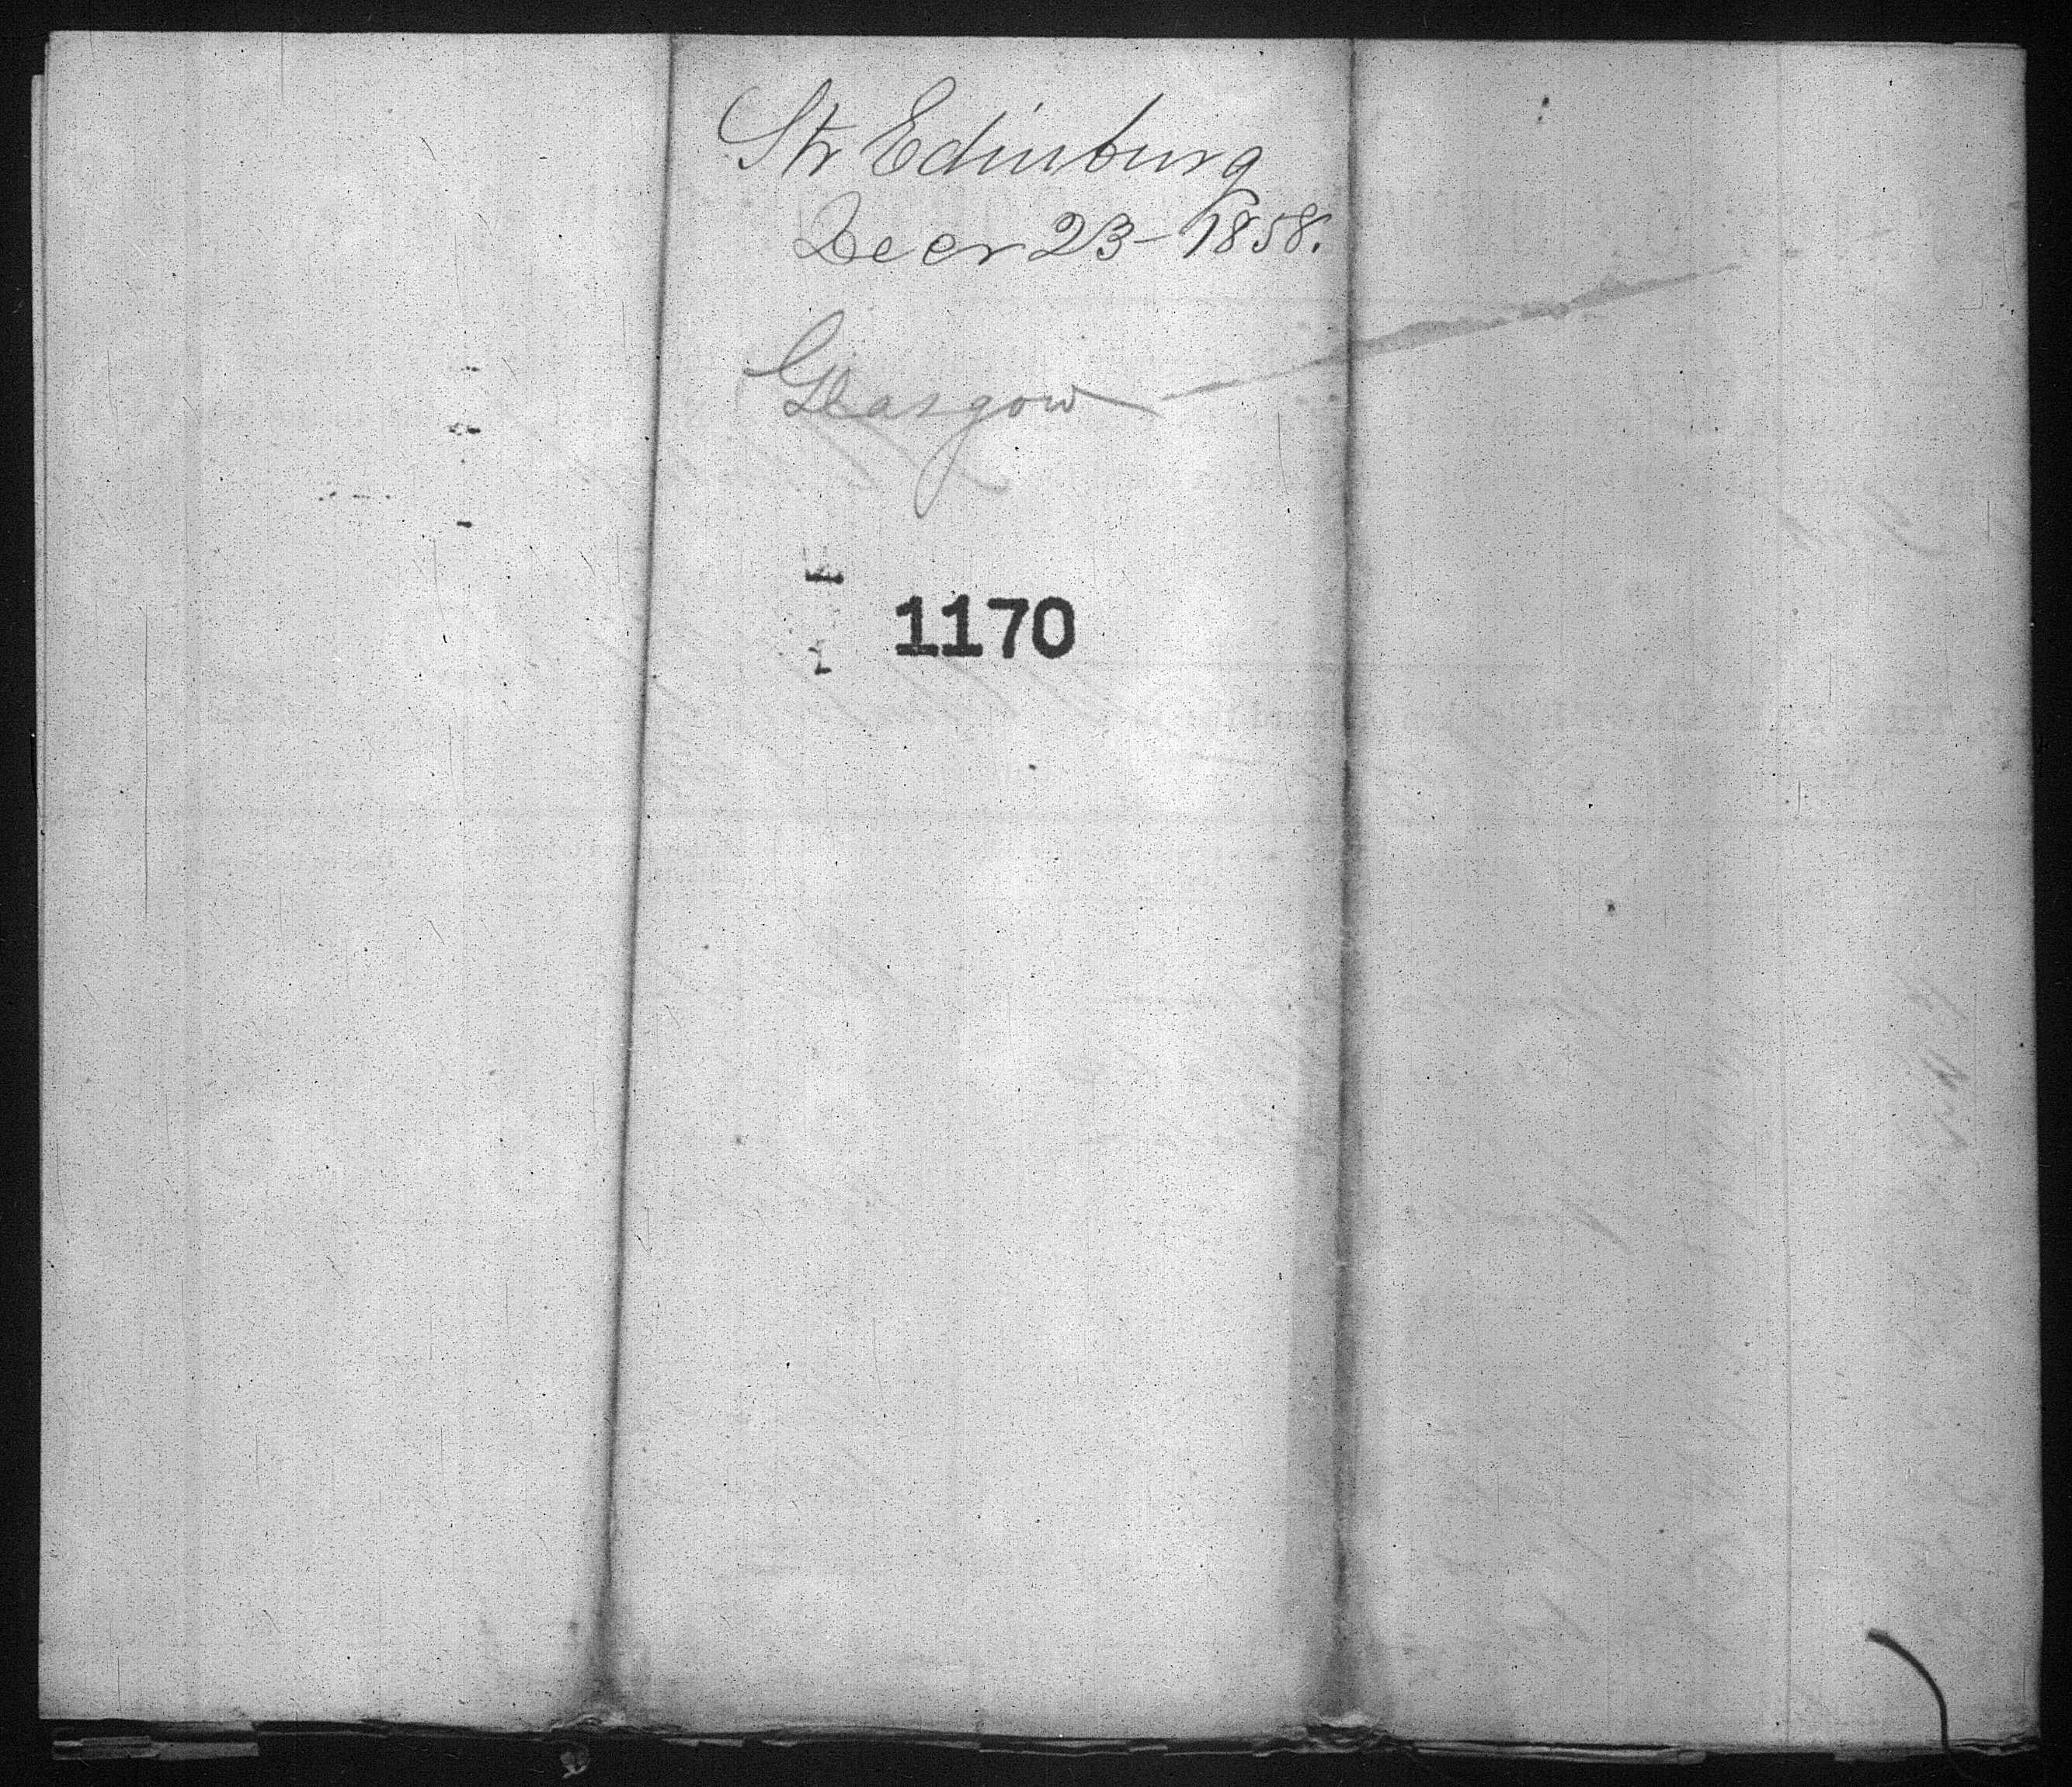 Str Edinburg
Decr 23 - 1858.
Glasgow
1170